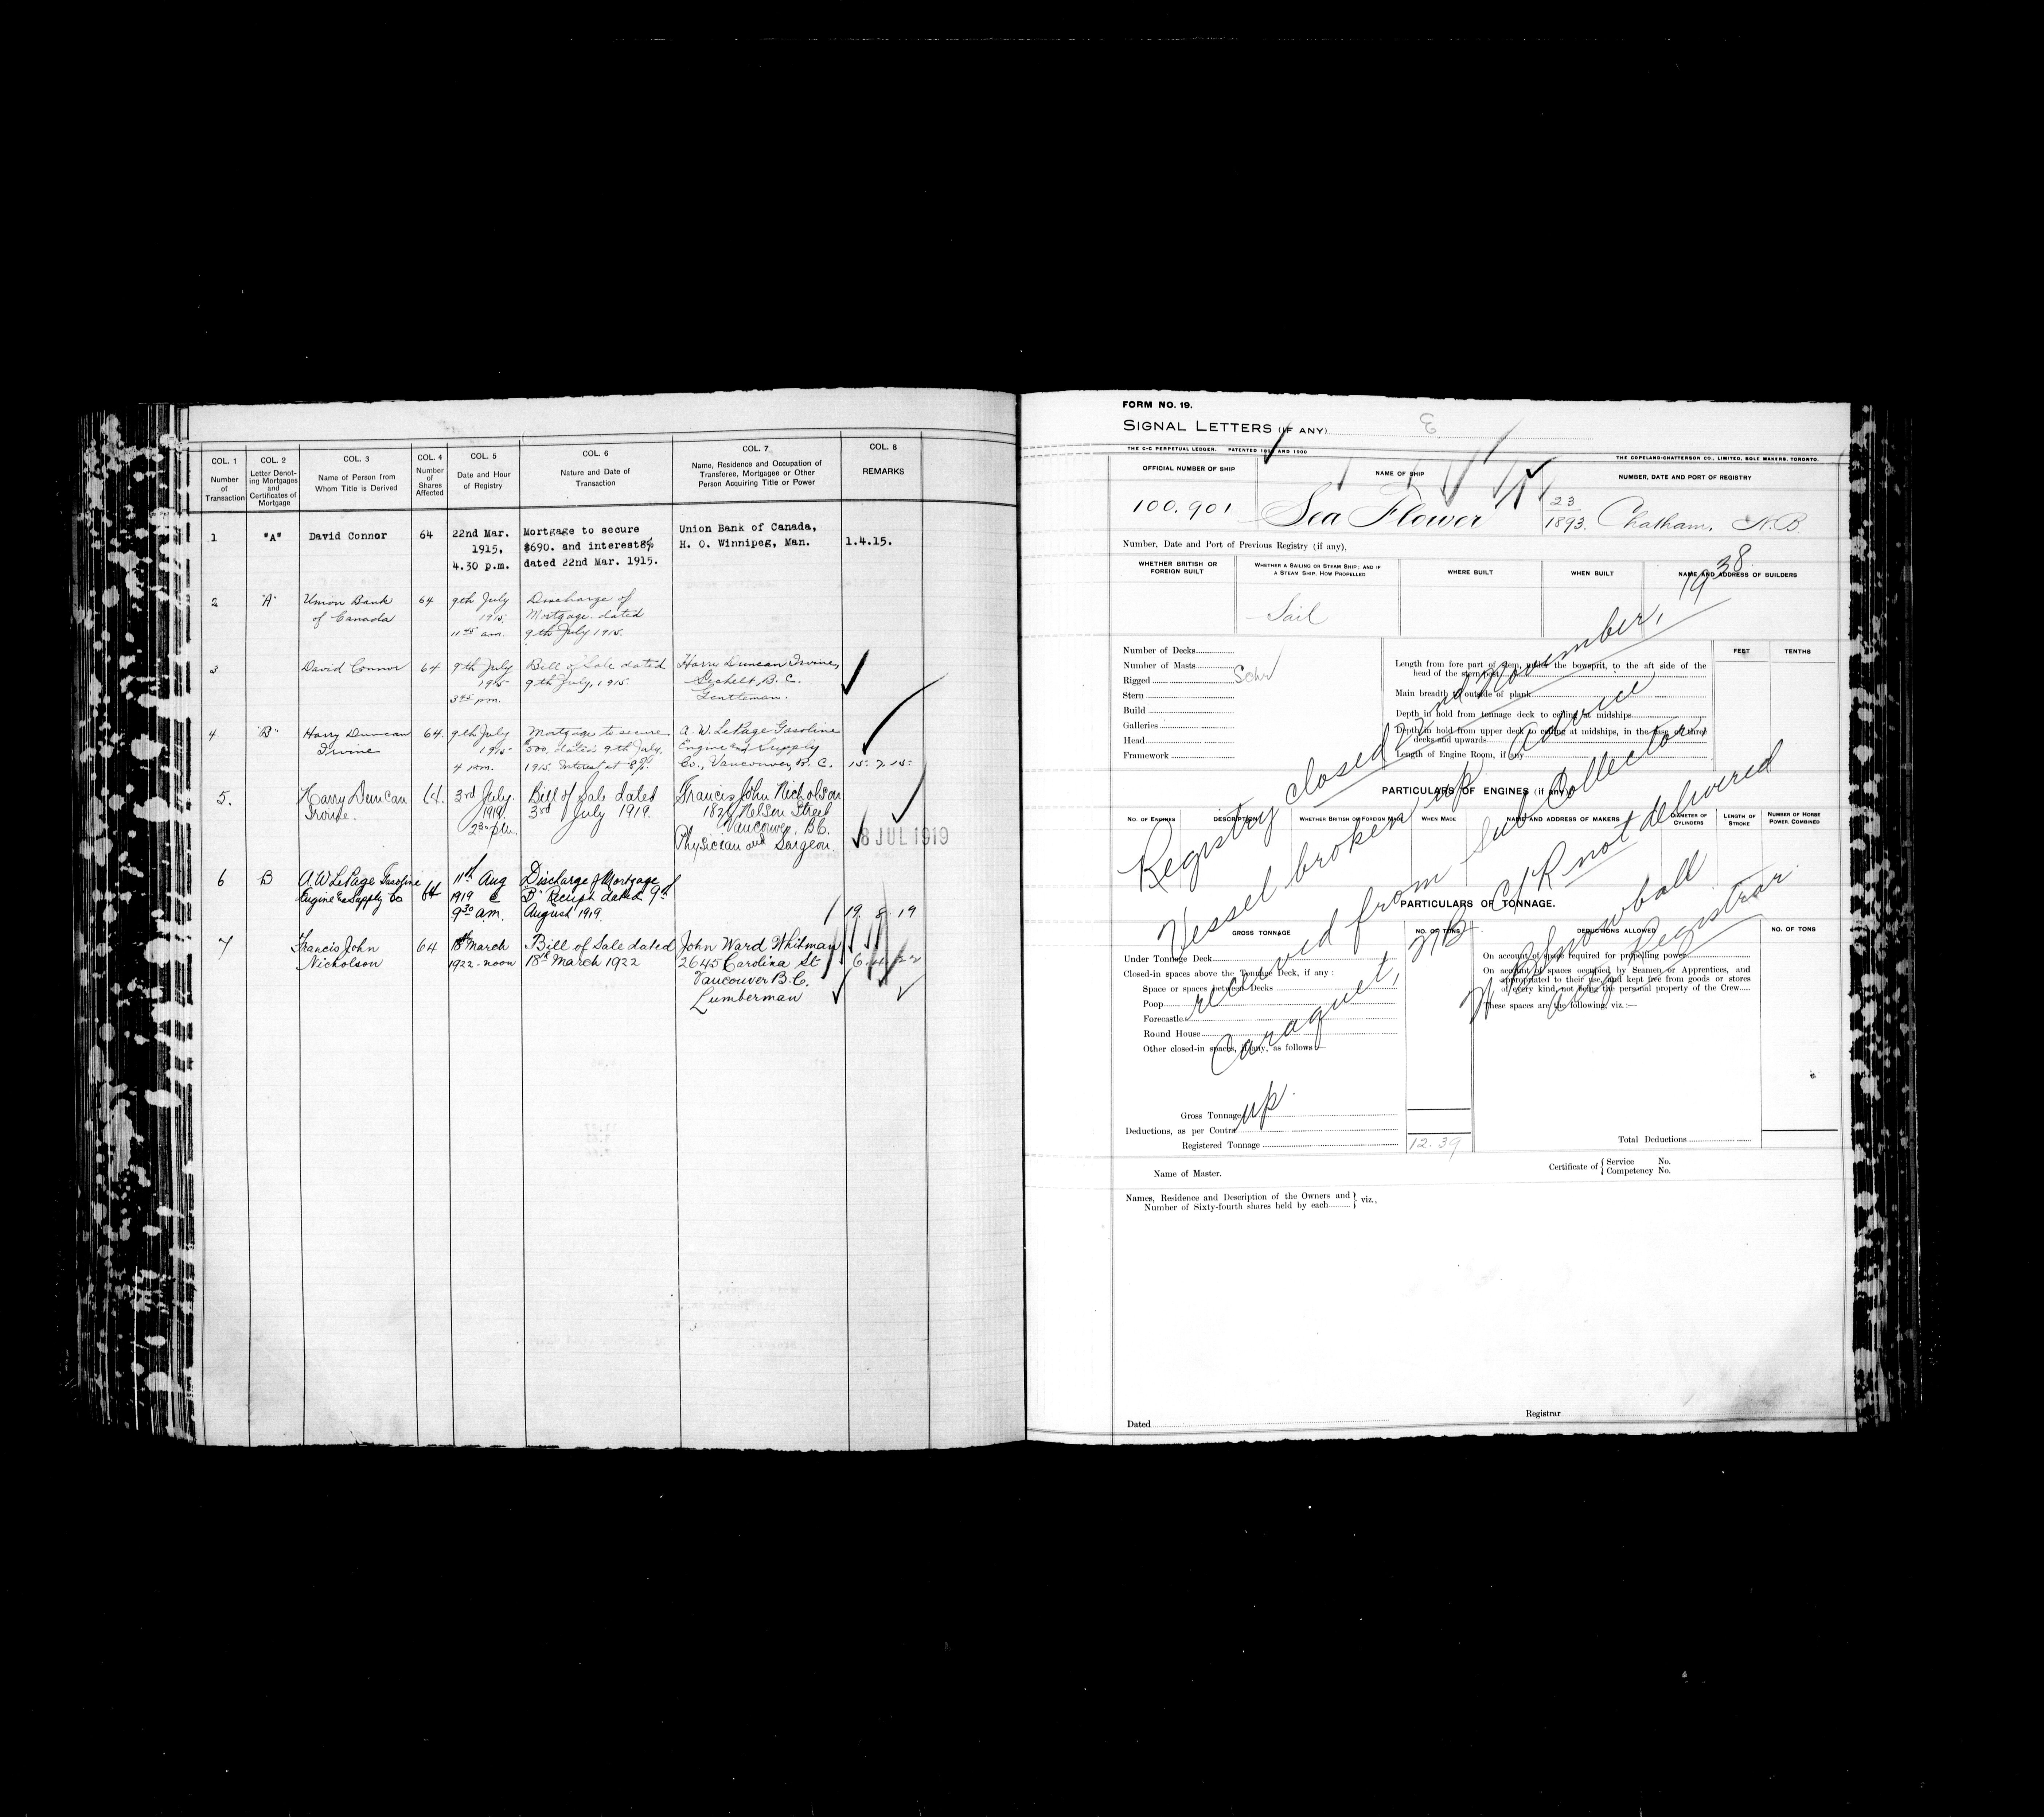 COL. 1
Number
of
Transaction
COL. 2
Letter Denot-
ing Mortgages
and
Certificates of
Mortgage
COL. 3
Name of Person from
Whom Title is Derived
COL. 4
Number
of
Shares
Affected
COL. 5
Date and Hour
of Registry
COL. 6
Nature and Date of
Transaction
COL. 7
Name, Residence and Occupation of
Transferee, Mortgagee or Other
Person Acquiring Title or Power
COL. 8
REMARKS
1 "A" David Connor 64 22nd Mar. Mortgage to secure Union Bank of Canada,
1915, $690. and interest8% H. O. Winnipeg, Man. 1.4.15.
4.30 p.m. dated 22nd Mar. 1915.
2 "A" Union Bank 64 9th July Discharge of
of Canada 1915, Mortgage dated
11 45 a.m. 9th July 1915.
3 David Connor 64 9th July Bill of Sale dated Harry Duncan Irvine,
1915 9th July, 1915 Sechelt, B.C.
3 p.m. Gentleman.
4. "B" Harry Duncan 64. 9th July Mortgage to secure A. W. LePage Gasoline
Irvine 1915 500. dated 9th July, Engine and Supply
4 p.m. 1915. Interest at 8%. Co., Vancouver, B. C. 15. 7. 15.
5. Harry Duncan 64. 3rd July Bill of Sale dated Francis John Nicholson
Irvine. 1919. 3rd July 1919. Nelson Street
2 30 p.m. Vancouver, B.C.
Physician and Surgeon. 8 JUL 1919
6 B A. W. LePage Gasoline 64 11th Aug Discharge of Mortgage
Engine & Supply Co 1919 "B" Receipt dated 9th
9 30 a.m. August 1919. 19 8 19
7 Francis John 64 18th March Bill of Sale dated John Ward Whitman
Nicholson 1922 - noon 18th March 1922 2645 Carolina St 6. 4. 22
Vancouver B.C.
Lumberman
FORM NO. 19.
SIGNAL LETTERS (IF ANY) E
THE C-C PERPETUAL LEDGER. PATENTED AND 1900 THE COPELAND-CHATTERSON CO., LIMITED, SOLE MAKERS, TORONTO.
OFFICIAL NUMBER OF SHIP NAME OF SHIP NUMBER, DATE AND PORT OF REGISTRY
100,901 Sea Flower 23
1893. Chatham, N.B.
Number, Date and Port of Previous Registry (if any),
WHETHER BRITISH OR
FOREIGN BUILT
WHETHER A SAILING OR STEAM SHIP; AND IF
A STEAM SHIP, HOW PROPELLED
WHERE BUILT
WHEN BUILT
NAME AND ADDRESS OF BUILDERS
Sail
Number of Decks
Number of Masts
Rigged Schr
Stern
Build
Galleries
Head
Framework
FEET TENTHS
Length from fore part of stem, under the bowsprit, to the aft side of the
head of the stern post
Main breadth to outside of plank
Depth in hold from tonnage deck to ceiling at midships
Depth in hold from upper deck to ceiling at midships, in the case of three
decks and upwards
Length of Engine Room, if any
Registry closed 22nd November, 1938
Vessel broken up advice
received from Sub Collector
Caraquet, NB C/R not delivered
up W B Snowball
Registrar
PARTICULARS OF ENGINES (if any)
NO. OF ENGINES
DESCRIPTION
WHETHER BRITISH OR FOREIGN MADE
WHEN MADE
NAME AND ADDRESS OF MAKERS
DIAMETER OF
CYLINDERS
LENGTH OF
STROKE
NUMBER OF HORSE
POWER, COMBINED
PARTICULARS OF TONNAGE.
GROSS TONNAGE NO. OF TONS DEDUCTIONS ALLOWED NO. OF TONS
Under Tonnage Deck
Closed-in spaces above the Tonnage Deck, if any :
Space or spaces between Decks
Poop
Forecastle
Round House
Other closed-in spaces, if any, as follows
Gross Tonnage
Deductions, as per Contra
Registered Tonnage 12.39
On account of space required for propelling power
On account of spaces occupied by Seamen or Apprentices, and
appropriated to their use, and kept free from goods or stores
of every kind, not being the personal property of the Crew
These spaces are the following, viz. :—
Total Deductions
Name of Master. Certificate of { Service No.
Competency No.
Names, Residence and Description of the Owners and
Number of Sixty-fourth shares held by each } viz.,
Dated Registrar